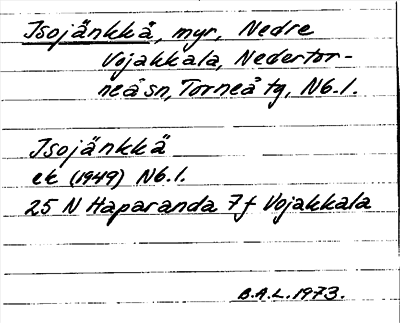 Isojänkkä, myr, Nedre
Vojakkala, Nedertor-
neå sn, Torneå tg, Nb.l.
Isojänkkä
ek (1949) Nb.l.
25 N Haparanda 7f Vojakkala
B.A.L. 1973.